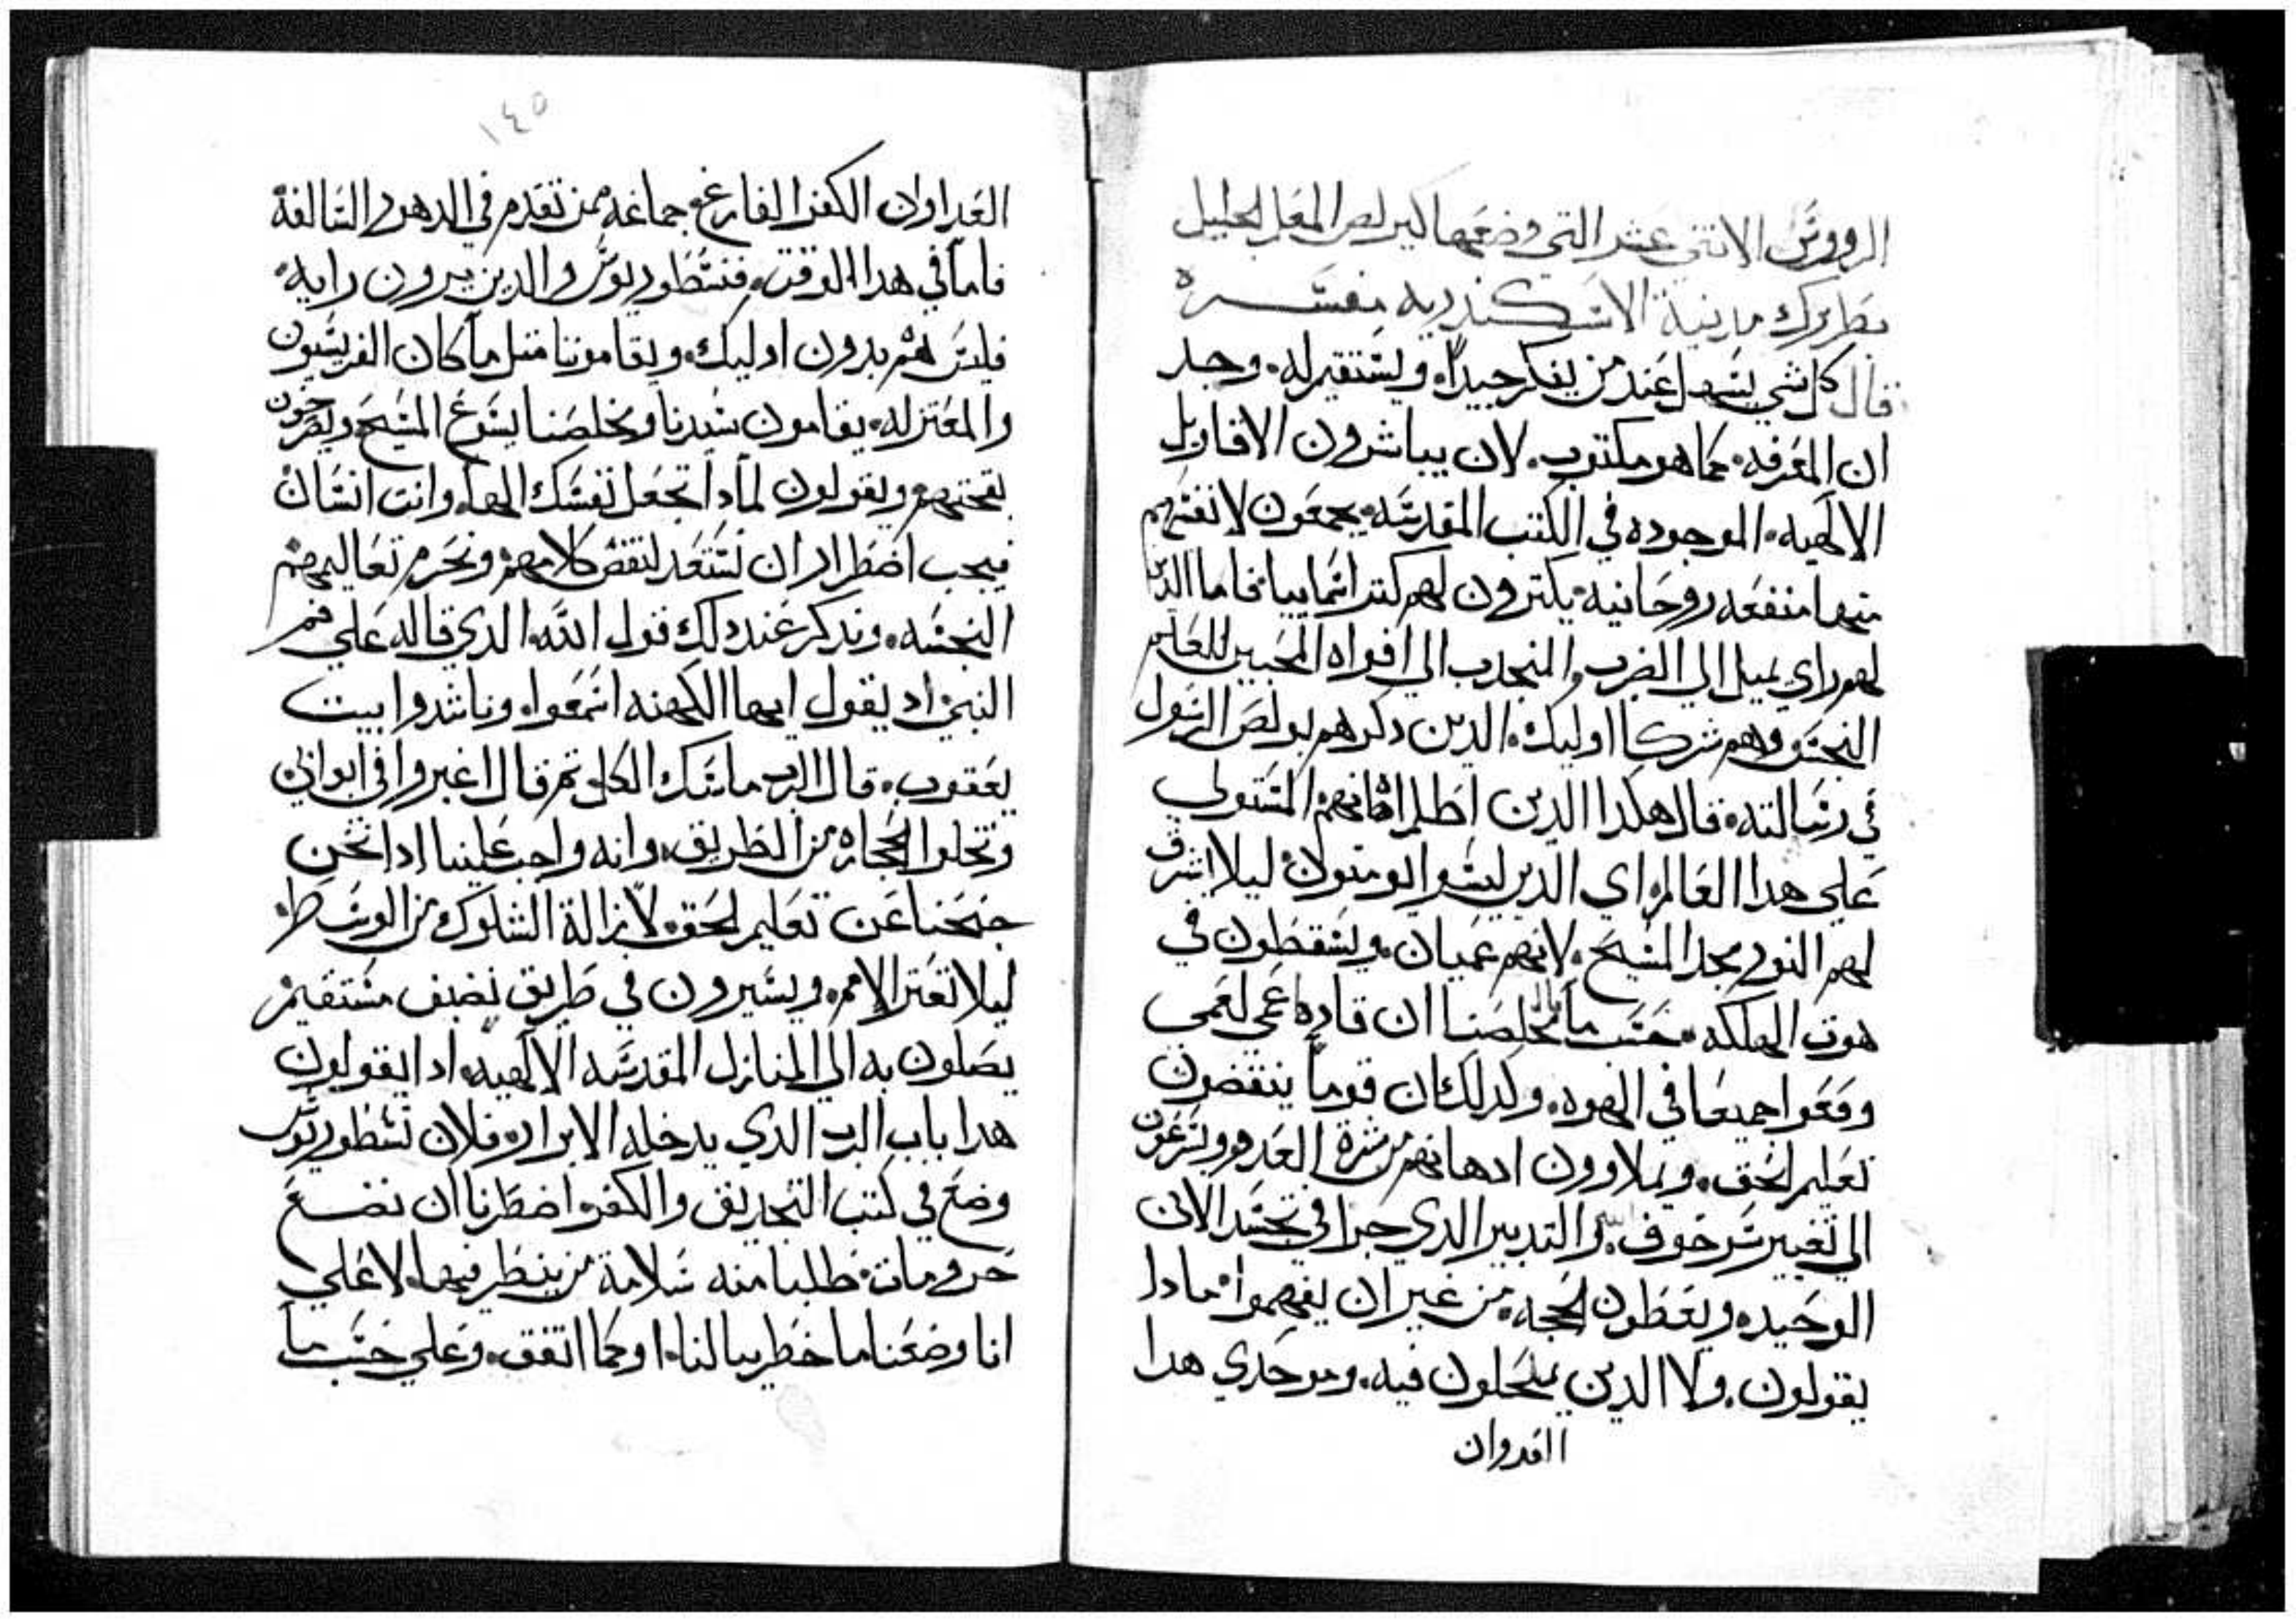 الرووس الاتنى عشر التي وضعها كيرلص المعلم الجليل
بطريرك مدينة الاسكندريه مفسره
قال كل شي يسهل عند من يفكر جيداً. ويستقيم له. وجد
ان المعرفه. كما هو مكتوب. لان يباشرون الاقاويل
الالهيه. الموجوده في الكتب المقدسه. يجمعون لانفسهم
منها منفعه روحانيه. يكتزون لهم كنز اسماييا. فاما الذين
لهم راي يميل الي الضرب والمنجدب الي افواه المحبين للعالم
النجس وهم شركا اوليك. الدين دكرهم بولص الرسول
في رسالته. قال هكدا الدين اظلم ادهانهم المستولي
علي هدا العالم. اي الدين ليسوا بومنون. ليلا يشرق
لهم النور مجد المسيح. لانهم عميان. ويسقطون في
هوت الهلكه. حسب ما قال مخلصنا ان قاده اعمي لعمي
وقعوا جميعا في الهوه. وكدلك ان قوما ينقضون
تعليم الحق. ويملاوون ادهانهم من شرة العدو ويسرعون
الي تغيير سر خوف. والتدبير الدي جرا في تجسد الابن
الوحيد. ويعظون الحجه. من غير ان يفهموا. مادا
يقولون. ولا الدين يمحلون فيه. وموجدي هدا
الغدروان
١٤٥
الغدر اوان الكفر الفارغ. جماعه ممن تقدم في الدهور السالفة
فاما في هدا الوقت. فنسطوريوس والدين يرون رايه.
فليس هم بدون اوليك. ويقاموننا متل ما كان الفريسيون
والمعتزله. يقامون سيدنا ومخلصنا يسوع المسيح ويصرخون
بقحتهم ويقولون لمادا تجعل نفسك الها. وانت انسان
فيجب اضطرار ان نستعد لنقض كلامهم ونحرم تعاليمهم
النجسه. وندكر عند دلك قول الله. الدي قاله علي فم
النبي اد يقول ايها الكهنه اسمعوا. وناشدوا بيت
يعقوب. قال الرب ماسك الكل. تم قال اعبروا في ابوابي
ونحلوا الحجاره من الطريق. وانه واجب علينا ادا نحن
جنحنا عن تعليم الحق. لازالة الشلوك من الوسط.
ليلا تعتر الامم. ويسيرون في طريق نضيف مستقيم
يصلون به الي المنازل المقدسه الالهيه. ادا يقولون
هدا باب الرب الدي يدخله الابرار. فلان نسطوريوس
وضع في كتب التجديف والكفر اضطرنا ان نضع
حرومات. طلبا منه سلامة من ينظر فيها. لا علي
انا وضعنا ما خطر ببالنا. او كما اتفق. وعلي حسب ما